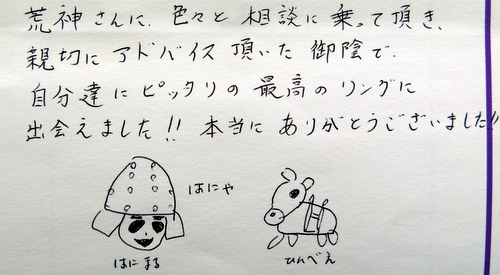 荒神さんに、色々と相談に乗って頂き、
親切にアドバイス頂いた御陰で、
自分達にピッタリの最高のリングに
出会えました!! 本当にありがとうございました!!
はにゃ
はにまる
ひんべえ